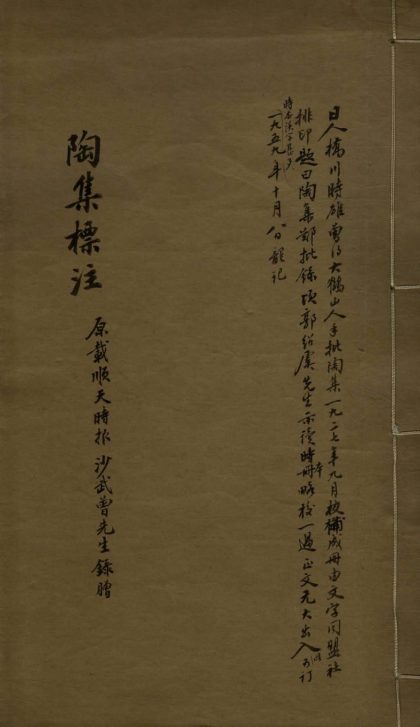 日人橋川時雄曾得大鶴山人手批陶集一九二七年九月校補成冊由文字同盟社
排印題曰陶集鄭批錄頃郭紹虞先生示讀時本冊略校一過正文无大出入
一九五九年十月八日龍記
陶集標注
原載順天時报沙武曾先生錄贈